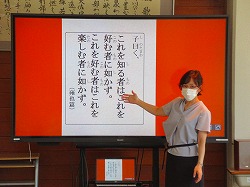 子曰く、
これを知る者はこれを
好む者に如かず。
これを好む者はこれを
楽しむ者に如かず。
(雍也篇)